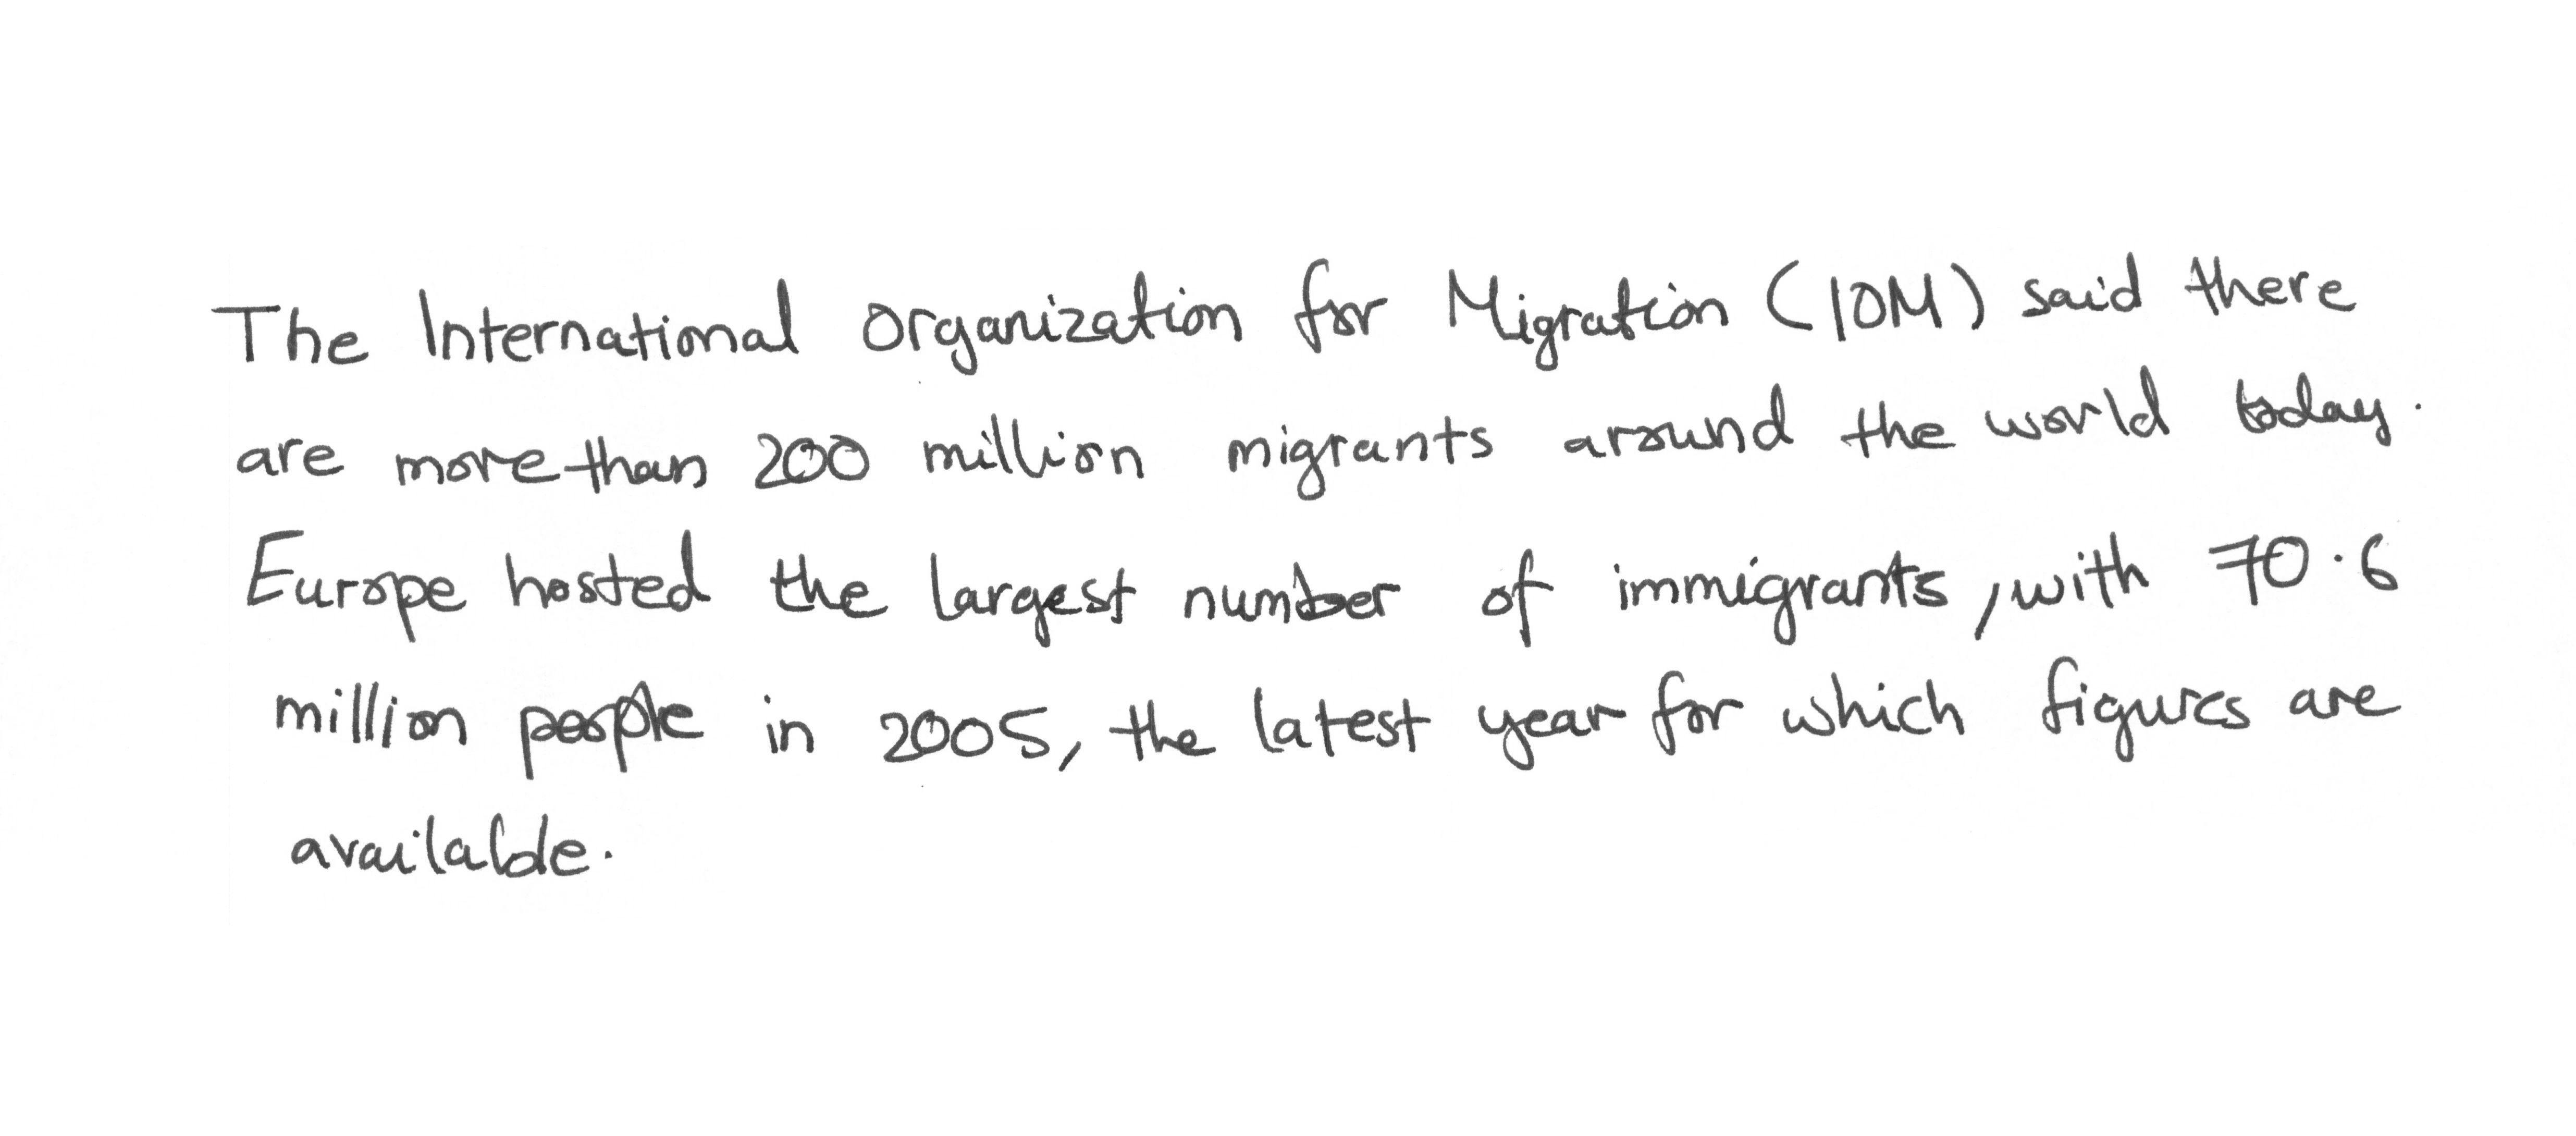 The International Organization for Migration (IOM) said there
are more than 200 million migrants around the world today.
Europe hosted the largest number of immigrants, with 70.6
million people in 2005, the latest year for which figures are
available.